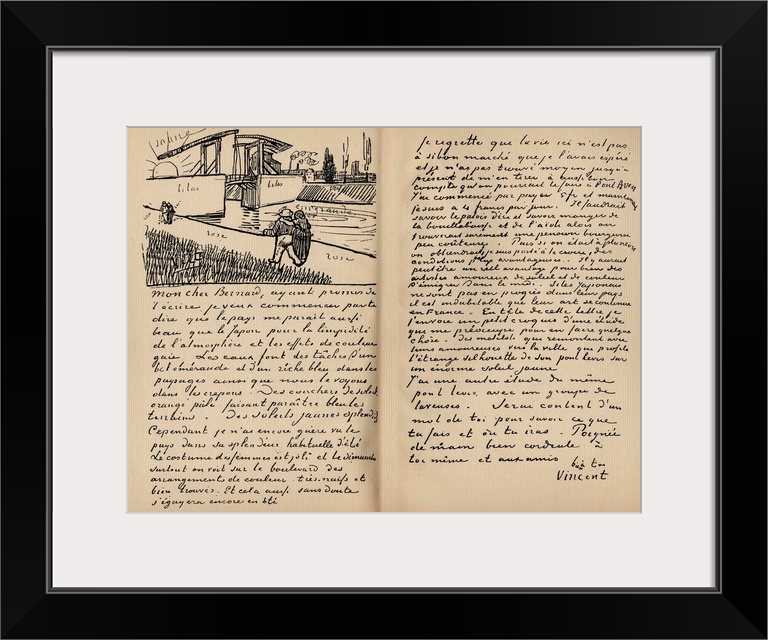 jaune
lilas lilas
émeraude
rose
rose
Mon cher Bernard, ayant promis de
t'écrire je veux commencer par te
dire que le pays me parait aussi
beau que le Japon pour la limpidité
de l'atmosphère et les effets de couleur
gaie. Les eaux font des tâches d'un
bel émeraude et d'un riche bleu dans les
paysages ainsi que nous le voyons
dans les crepons. Des couchers de soleil
orangé pâle faisant paraître bleu les
terrains. Des soleils jaunes splendides
Cependant je n'ai encore guère vu le
pays dans sa splendeur habituelle d'été
Le costume des femmes est joli et le dimanche
surtout on voit sur le boulevard des
arrangements de couleur très naïfs et
bien trouvés. Et cela aussi sans doute
s'égayera encore en été
Je regrette que la vie ici n'est pas
à si bon marché que je l'avais espéré
et je n'ai pas trouvé moyen jusqu'à
présent de m'en tirer à aussi bon
compte qu'on pourrait le faire à Pont Aven
J'ai commencé par payer 5 fr et maintenant
je suis à 4 francs par jour. Il faudrait
savoir le patois d'ici et savoir manger de
la bouillabaisse et de l'aïoli alors on
trouverait surement une pension bourgeoise
peu coûteuse. Puis si on était à plusieurs
on obtiendrait je suis porté à le croire, des
conditions plus avantageuses. Il y aurait
peut être un réel avantage pour bien des
artistes amoureux de soleil et de couleur
d'émigrer dans le midi. Si les Japonais
ne sont pas en progrès dans leur pays
il est indubitable que leur art se continue
en France. En tête de cette lettre je
t'envoie un petit croquis d'une étude
qui me préoccupe pour en faire quelque
chose. Des matelots qui remontent avec
leurs amoureuses vers la ville qui profile
l'étrange silhouette de son pont levis sur
un énorme soleil jaune
J'ai une autre étude du même
pont levis avec un groupe de
laveuses. Serai content d'un
mot de toi pour savoir ce que
tu fais et où tu iras. Poignée
de main bien cordiale à
toi même et aux amis b. à toi
Vincent